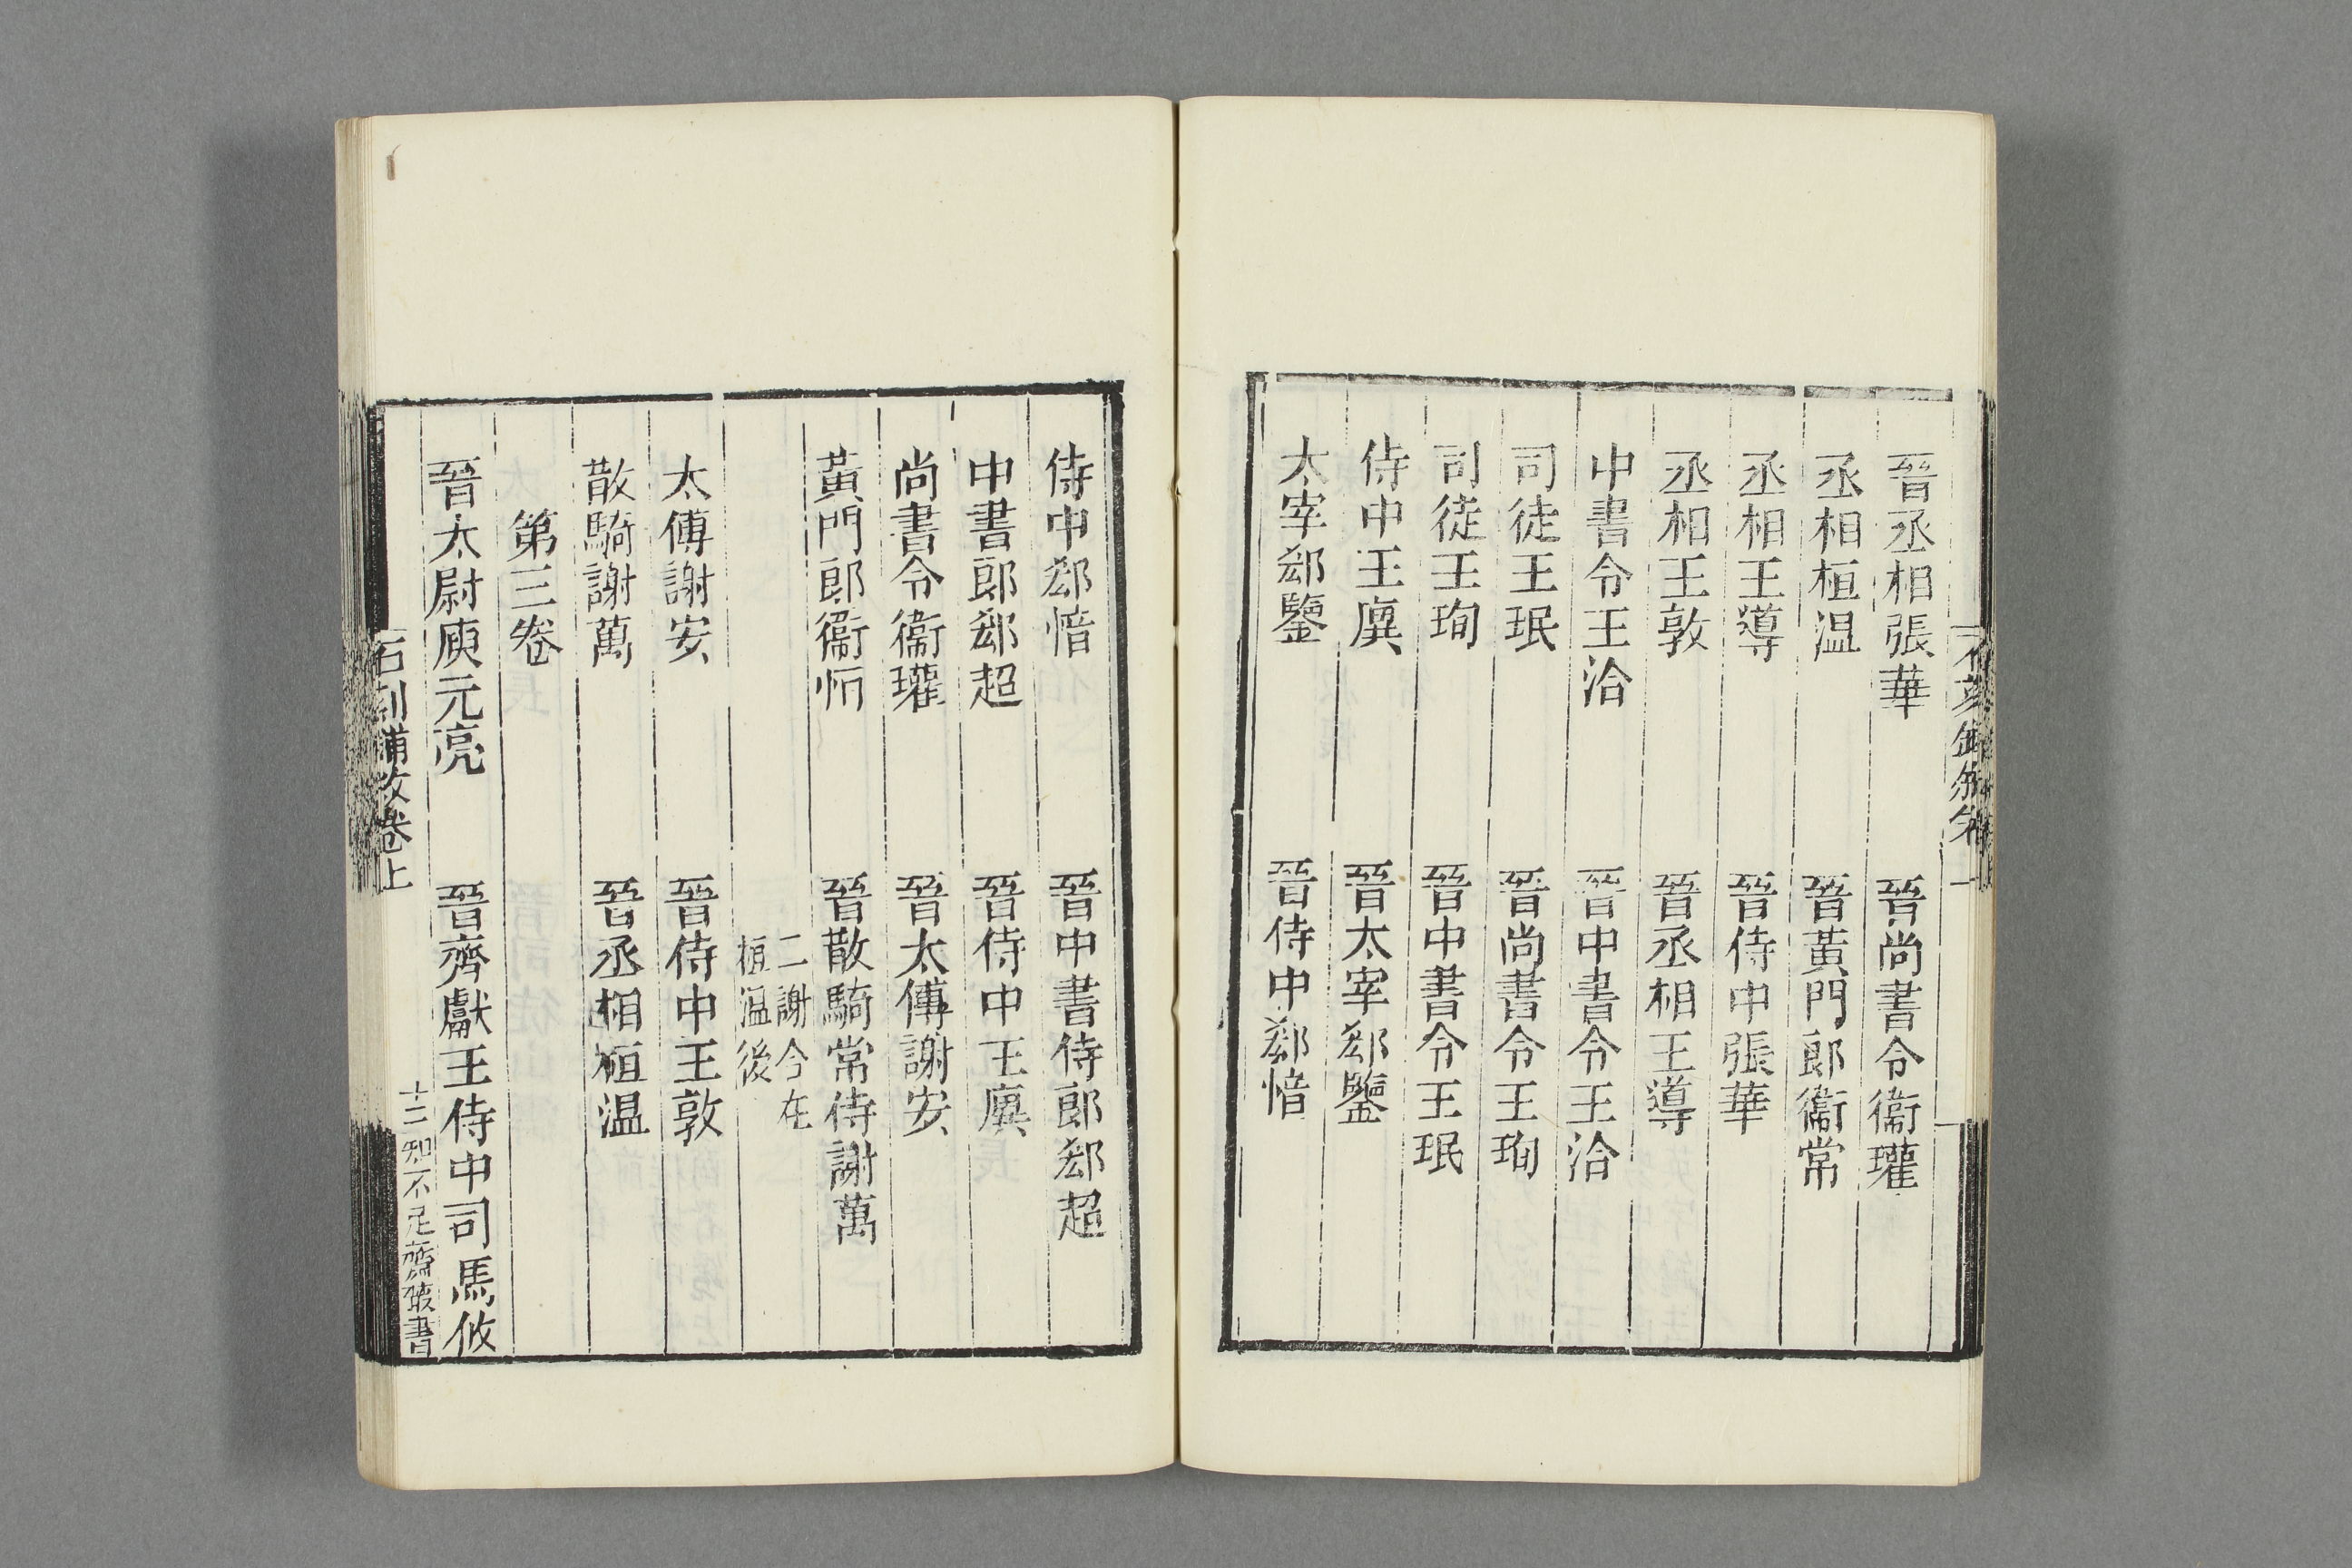 晉丞相張華　晉尚書令衞瓘
丞相桓溫　晉黃門郎衞常
丞相王導　晉侍中張華
丞相王敦　晉丞相王導
中書令王洽　晉中書令王洽
司徒王珉　晉尚書令王珣
司徒王珣　晉中書令王珉
侍中王廙　晉太宰郄鑒
太宰郄鑒　晉侍中郄愔
侍中郄愔　晉中書侍郎郄超
中書郎郄超　晉侍中王廙
尚書令衞瓘　晉太傅謝安
黃門郎衞恒　晉散騎常侍謝萬
二謝今在
桓溫後
太傅謝安　晉侍中王敦
散騎謝萬　晉丞相桓溫
第三卷
晉太尉庾元亮　晉齊獻王侍中司馬攸
石刻鋪敘卷上
十二
知不足齋叢書